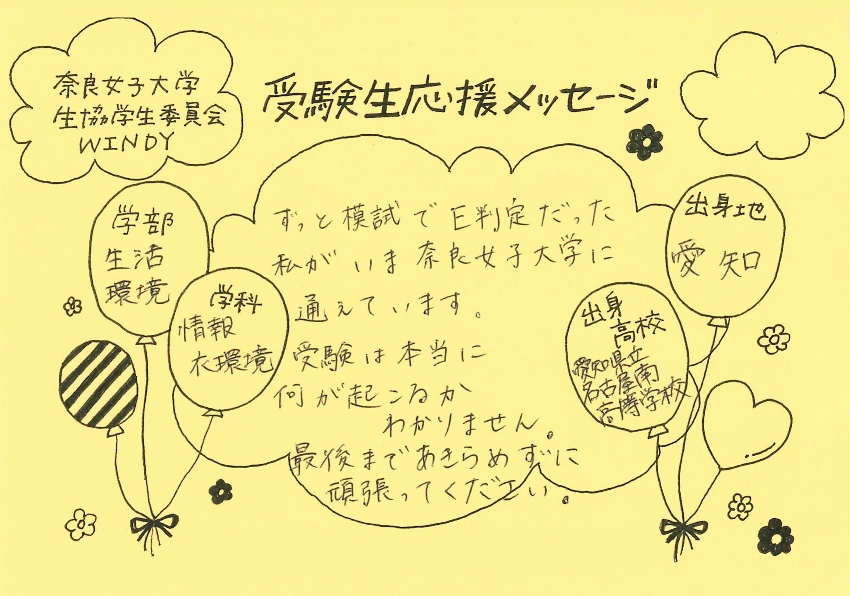 奈良女子大学
生協学生委員会
WINDY
受験生応援メッセージ
学部
生活
環境
学科
情報
衣環境
ずっと模試でE判定だった
私がいま奈良女子大学に
通えています。
受験は本当に
何が起こるか
わかりません。
最後まであきらめずに
頑張ってください。
出身地
愛知
出身
高校
愛知県立
名古屋南
高等学校